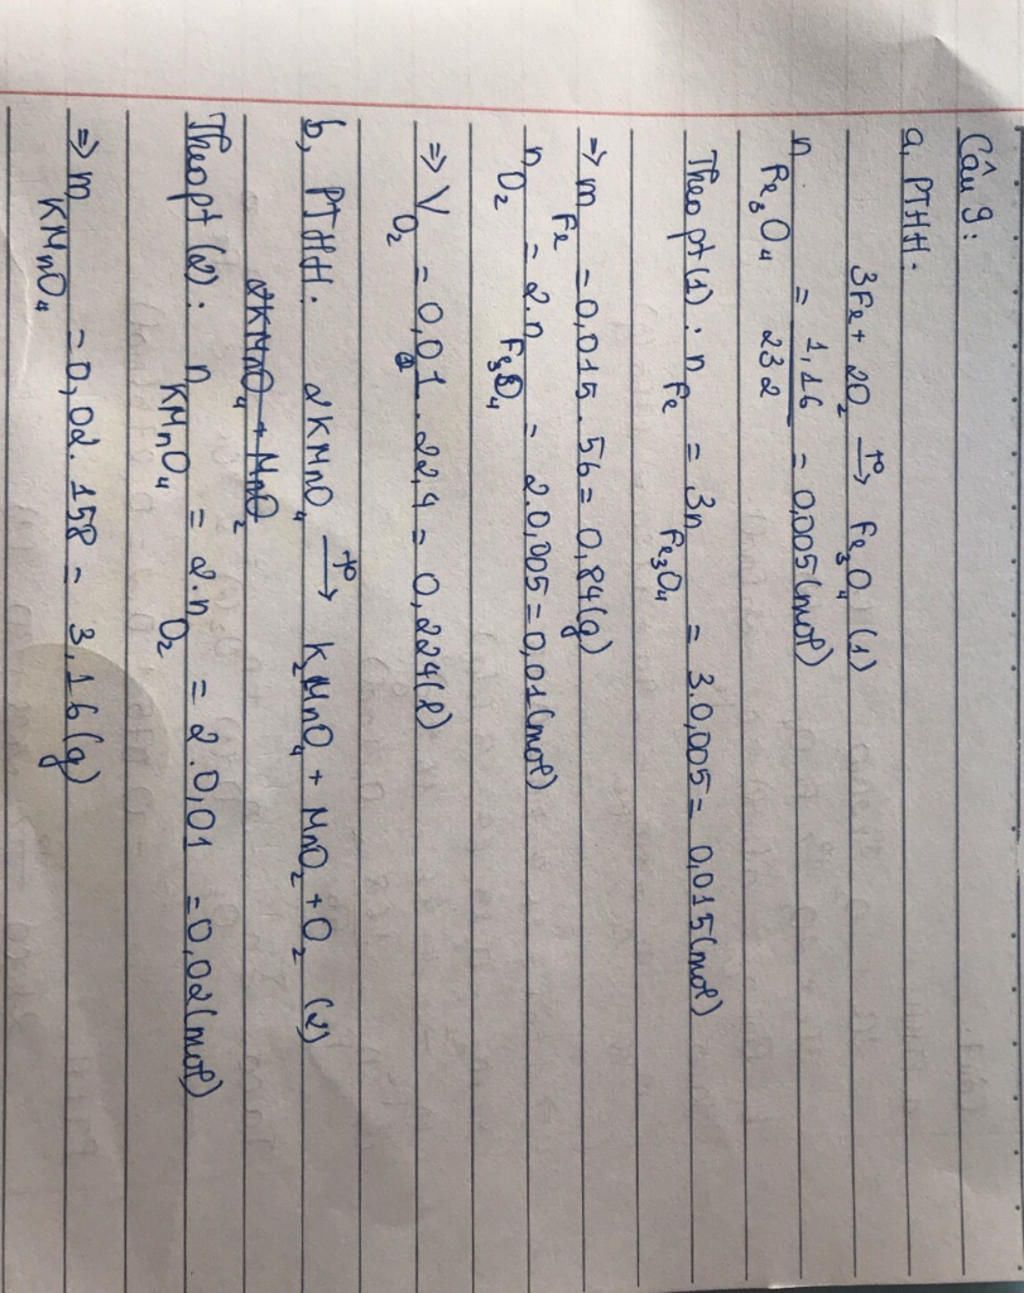 Câu 9:
a, PTHH:
3Fe + 2O₂ –t°→ Fe₃O₄ (1)
n Fe₃O₄ = 1,16/232 = 0,005 (mol)
Theo pt (1): n Fe = 3n Fe₃O₄ = 3.0,005 = 0,015 (mol)
=> m Fe = 0,015.56 = 0,84 (g)
n O₂ = 2.n Fe₃O₄ = 2.0,005 = 0,01 (mol)
=> V O₂ = 0,01.22,4 = 0,224 (l)
b, PTHH: 2KMnO₄ –t°→ K₂MnO₄ + MnO₂ + O₂ (2)
2KMnO₄ + MnO₂
Theo pt (2): n KMnO₄ = 2.n O₂ = 2.0,01 = 0,02 (mol)
=> m KMnO₄ = 0,02.158 = 3,16 (g)